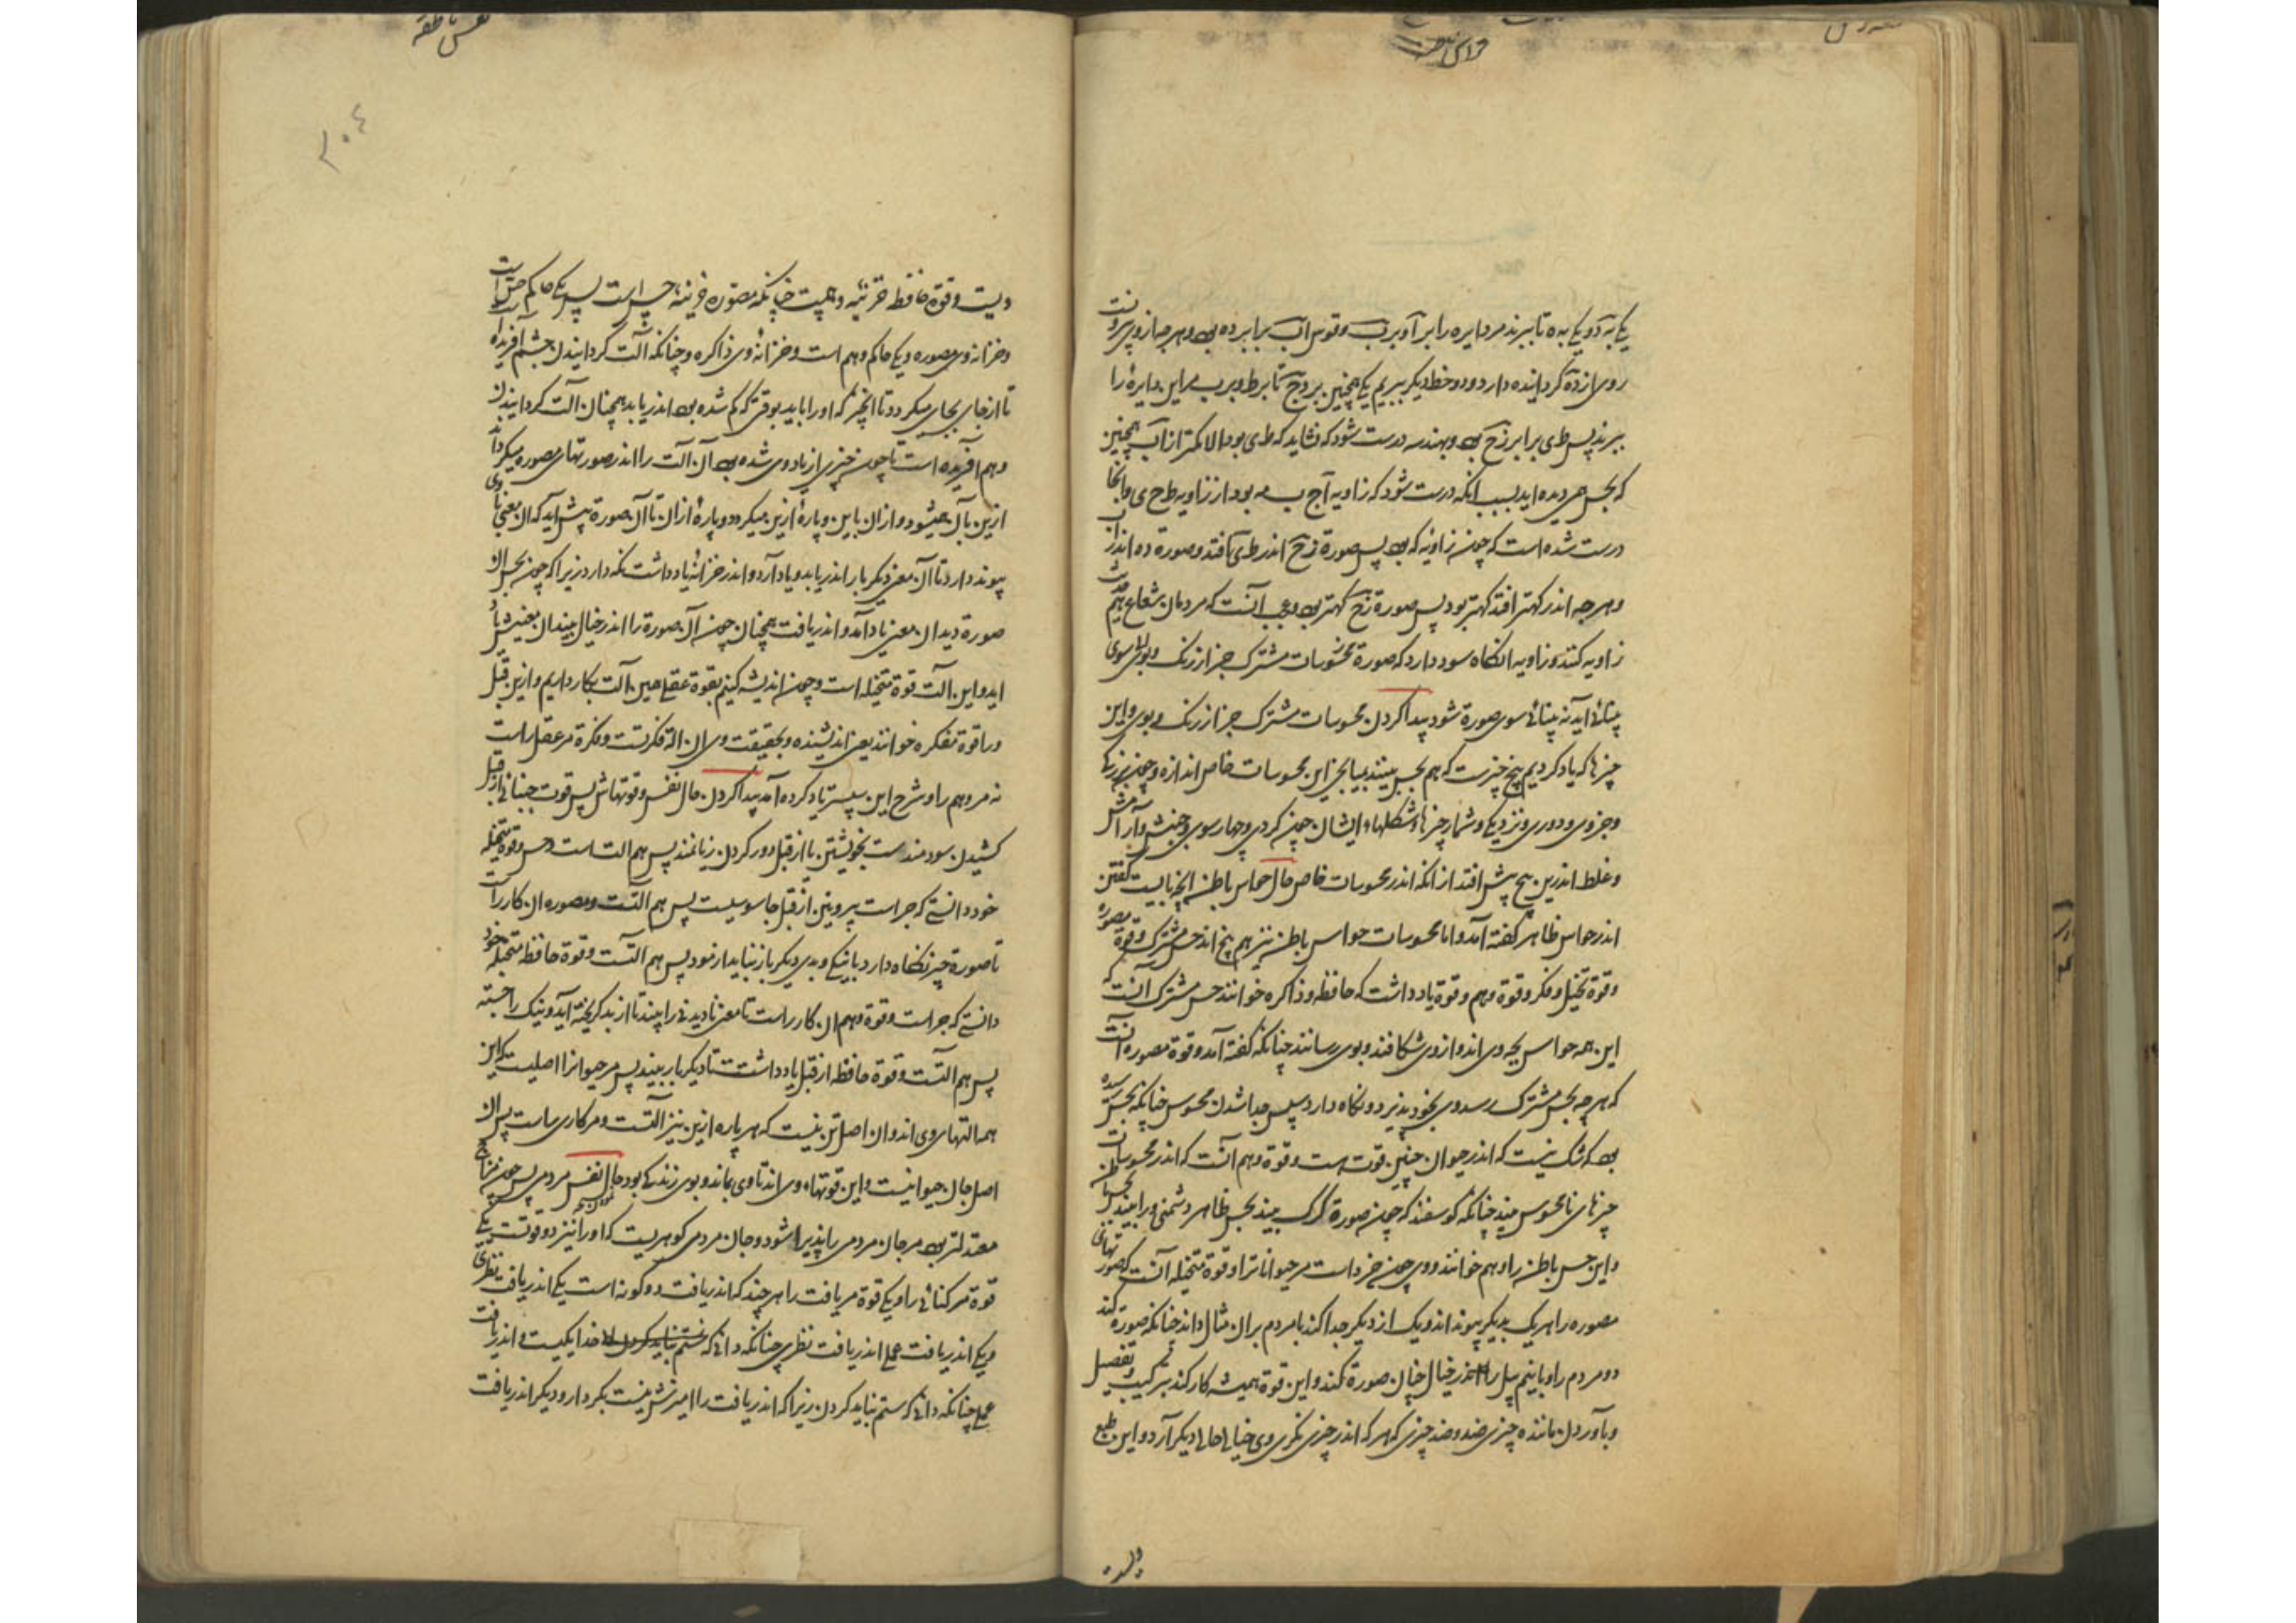 قوای نفس
یکی به د و یکی به ه تا ببرند مر دایره را بر آ و بر ب و قوس اب برابر ده بود و هرچه از وی سو است
روی از دة گردانیده دارد و دو خط دیگر ببریم یکی همچنین بر دح تا بر ط و بر ب مر این دایره را
ببرند پس ط ی برابر زح بود و بهندسه درست شود که نشاید که ط ی بود الا کمتر از اب همچنین
که بحس همی دیده اید بسبب آنکه درست شود که زاویه اج ب مه بود از زاویه ط ح ی و آنجا
درست شده است که چون زاویه که بود پس صورة زح اندر ط ی افتد و صورة ده اندر اب
و هرچه اندر کهتر افتد کهتر بود پس صورة زح کهتر بود و عجب آنست که مردمان شعاع هم
زاویه کنند و زاویه انگاه سود دارد که صورة محسوسات مشترک جز از رنگ و بوی سوی
بینائی آید نه بینائی سوی صورة شود پیدا کردن محسوسات مشترک جز از رنگ و بوی و این
چیزها که یاد کردیم پنج چیزست که هم بحس بینند بمیانجی این محسوسات خاص اندازه و چون بزرگی
و خردی و دوری و نزدیکی و شمار چیزها و شکلهاء ایشان چون گردی و چهارسوی و جنبش و آرامش
و غلط اندرین پنج بیش افتد از آنکه اندر محسوسات خاص حال حواس باطن آنچه بایست گفتن
اندر حواس ظاهر گفته آمد و اما محسوسات حواس باطن نیز هم پنج اند حس مشترک و قوة مصوره
و قوة تخیل و فکر و قوة وهم و قوة یادداشت که حافظه و ذاکره خوانند حس مشترک آنست که
این همه حواس بچه وی اند و از وی شکافند و بوی رسانند چنانکه گفته آمد و قوة مصوره آنست
که هرچه بحس مشترک رسد وی بخود پذیرد و نگاه دارد سپس جدا شدن محسوس چنانکه بحس رسیده
بود که شک نیست که اندر حیوان چنین قوت هست و قوة وهم آنست که اندر محسوسات
چیزهای نامحسوس بیند چنانکه گوسفند که چون صورة گرگ بیند بحس ظاهر دشمنی ورا بیند بحس باطن
و این حس باطن را وهم خوانند و وی چون خرد است مر حیوانانرا و قوة متخیله آنست که صورتهای
مصوره را هر یک بدیگر پیوند اند و یک از دیگر جدا کند تا مردم بر آن مثال داند چنانکه صورة کند
دو مردم را و یا نیم پیل را اندر خیال چنان صورة کند و این قوة همیشه کار کند بترکیب و تفصیل
و بآوردن ماننده چیزی ضد و ضد چیزی که هرکه اندر چیزی نگری وی خیالی حالی دیگر آرد و این طبع
ویست
نفس ناطقه
۲۰۴
ویست و قوة حافظه خزینه وهمست چنانکه مصوره خزینه حس است پس یکی حاکم حس است
و خزانه وی مصوره و یکی حاکم وهم است و خزانه وی ذاکره و چنانکه آلت گردانیدن چشم آفریده است
تا از جای بجای میگردد تا آن چیز که او را باید بوقتی که گم شده بود اندر یابد همچنان آلت گردانیدن
وهم آفریده است تا چون چیزی از یاد وی شده بود آن آلت را اندر صورتهای مصوره میگرداند
ازین بآن میشود و از آن باین و پارۀ ازین میگردد و پارۀ از آن تا آن صورة پیش آید که آن معنی با وی
پیوند دارد تا آن معنی دیگر بار اندر یابد و یاد آرد و اندر خزانۀ یادداشت نگه دارد زیرا که چون بحس آن
صورة دید آن معنی یاد آمد و اندر یافت همچنان چون آن صورة را اندر خیال بیند آن معنیش یاد
آید و این آلت قوة متخیله است و چون اندیشه کنیم بقوة عقل همین آلت بکار داریم و ازین قبل
ورا قوة مفکره خوانند یعنی اندیشنده و بحقیقت وی آن آلة فکرتست و فکرة مر عقل راست
نه مر وهم را و شرح این سپستر یاد کرده آمد پیدا کردن حال نفس و قوتهاش پس قوت جنبانی از قبل
کشیدن سودمندست بخویشتن یا از قبل دور کردن زیانمند پس هم آلت است و حس و قوة متخیله
خود دانستی که چراست بیرونین از قبل جاسوسیست پس هم آلتست و مصوره آن کار راست
تا صورة چیز نگاه دارد یا نیکی و بدی دیگر باز نباید آزمود پس هم آلتست و قوة حافظه متخیله خود
دانستی که چراست و قوة وهم آن کار راست تا معنی نادیدنی را بیند تا از بد گریخته آید و نیک را جسته
پس هم آلتست و قوة حافظه از قبل یادداشتست تا دیگر بار ببیند پس مر حیوانرا اصلیست که این
همه آلتهای وی اند و آن اصل تن نیست که هر پاره ازین نیز آلتست و مر کاری راست پس آن
اصل جان حیوانیست و این قوتهاء وی اند تا وی بماند و بوی زندگی بود حال نفس مردمی پس چون مزاج
معتدلتر بود مر جان مردمی را پذیرا شود و جان مردمی گوهریست که او را نیز دو قوتست یکی
قوة مر کنائی را و یکی قوة مر یافت را هرچند که اندر یافت دو گونه است یکی اندر یافت نظری
و یکی اندر یافت عملی اندر یافت نظری چنانکه دانی که خدا یکیست و اندر یافت
عملی چنانکه دانی که ستم نباید کردن زیرا که اندر یافت را آمیزش نیست بکردار و دیگر اندر یافت